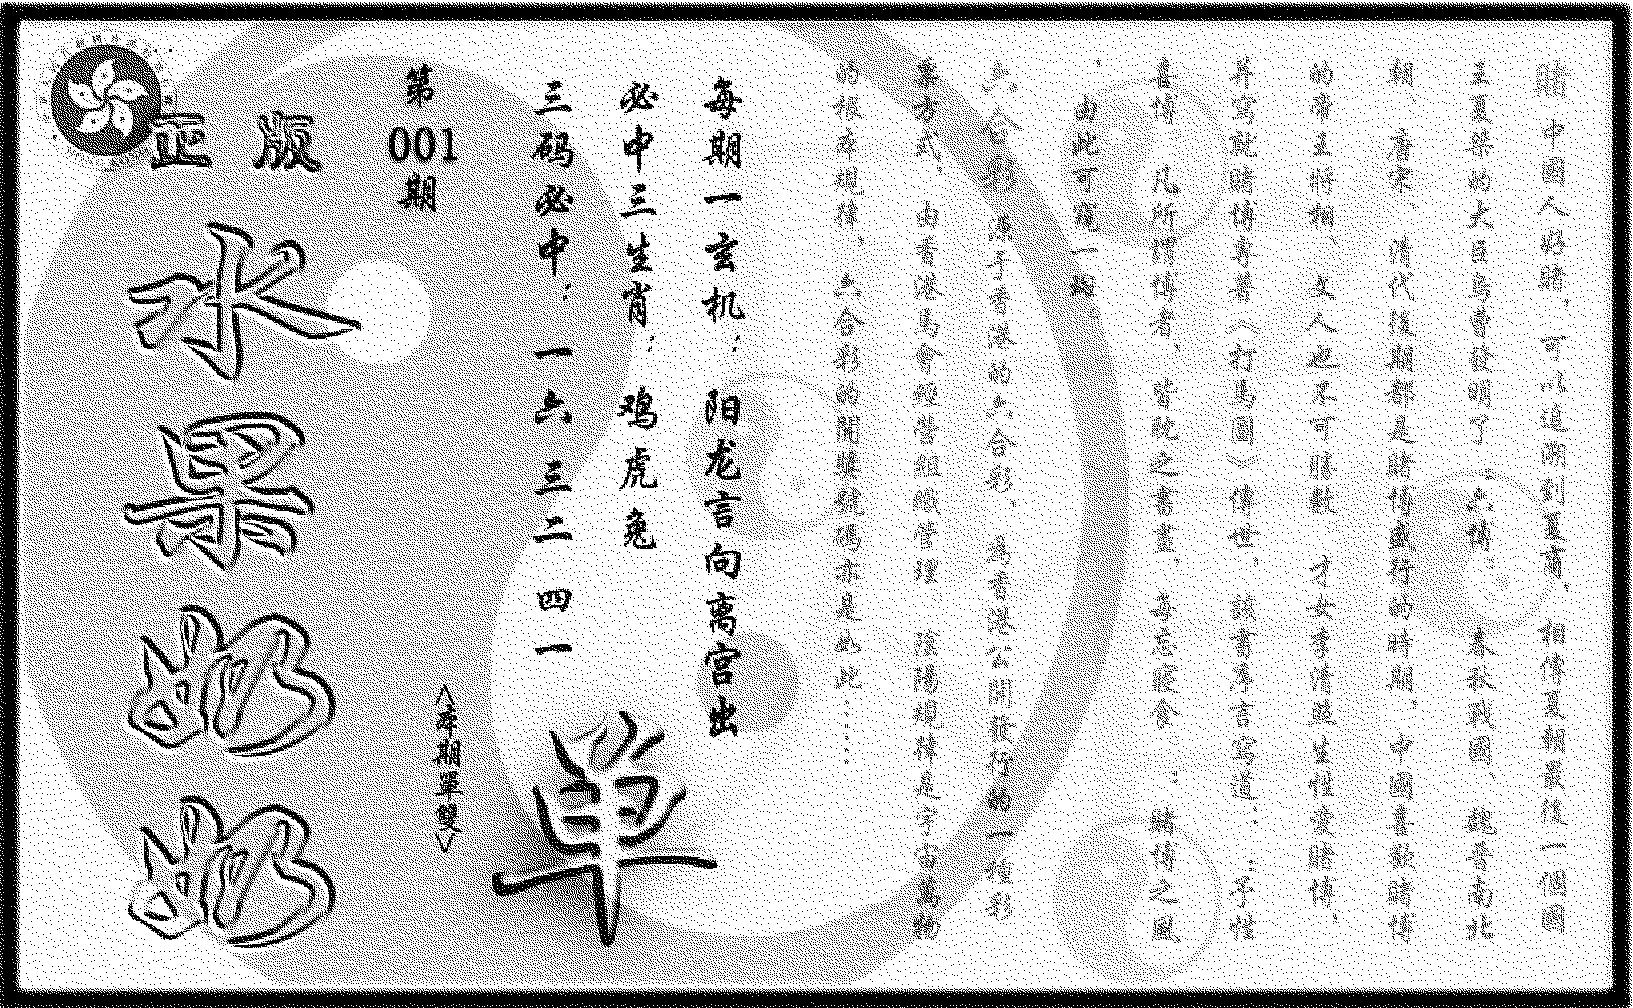 賭 中國人好賭，可以追溯到夏商，相傳夏朝最後一個國
王夏桀的大臣烏曹發明了“六博”，春秋戰國、魏晉南北
朝、唐宋、清代後期都是賭博盛行的時期。中國喜歡賭博
的帝王將相、文人也不可勝數，才女李清照生性愛賭博，
并寫就賭博專著〈打馬圖〉傳世，該書序言寫道：“予性
喜博，凡所謂博者，皆耽之，每忘寢食”；賭博之風
，由此可窺一斑
六合彩，源于香港的六合彩，爲香港公開發行的一種彩
票方式，由香港馬會經營組織管理，陰陽規律是宇宙萬物
的根本規律，六合彩的開獎號碼亦是如此……
每期一玄机：阳龙言向离宫出
必中三生肖：鸡虎兔
三码必中：一六三二四一
单
第001期
<本期單雙>
正版
水果奶奶